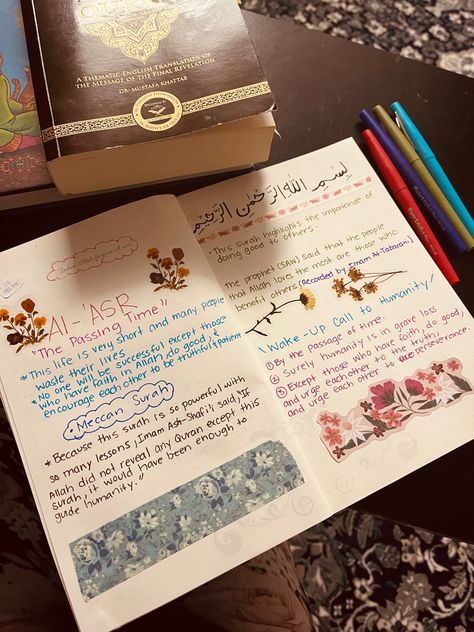 A THEMATIC ENGLISH TRANSLATION OF
THE MESSAGE OF THE FINAL REVELATION
DR. MUSTAFA KHATTAB
Al-ASR
"The Passing Time"
* This life is very short and many people
waste their lives.
* No one will be successful except those
who have faith in Allah, do good, &
encourage each other to be truthful & patient
• Meccan Surah
* Because this surah is so powerful with
so many lessons, Imam Ash-Shafi'i said, "If
Allah did not reveal any Quran except this
surah, it would have been enough to
guide humanity."
بِسْمِ اللهِ الرَّحْمٰنِ الرَّحِيْمِ
• This surah highlights the importance of
doing good to others.
The prophet (SAW) said that the people
that Allah loves the most are those who
benefit others (Recorded by Imam At-Tabarani)
\ Wake-Up Call to Humanity /
① By the passage of time.
② Surely humanity is in grave loss
③ Except those who have faith, do good,
and urge each other to the truth,
and urge each other to perseverance